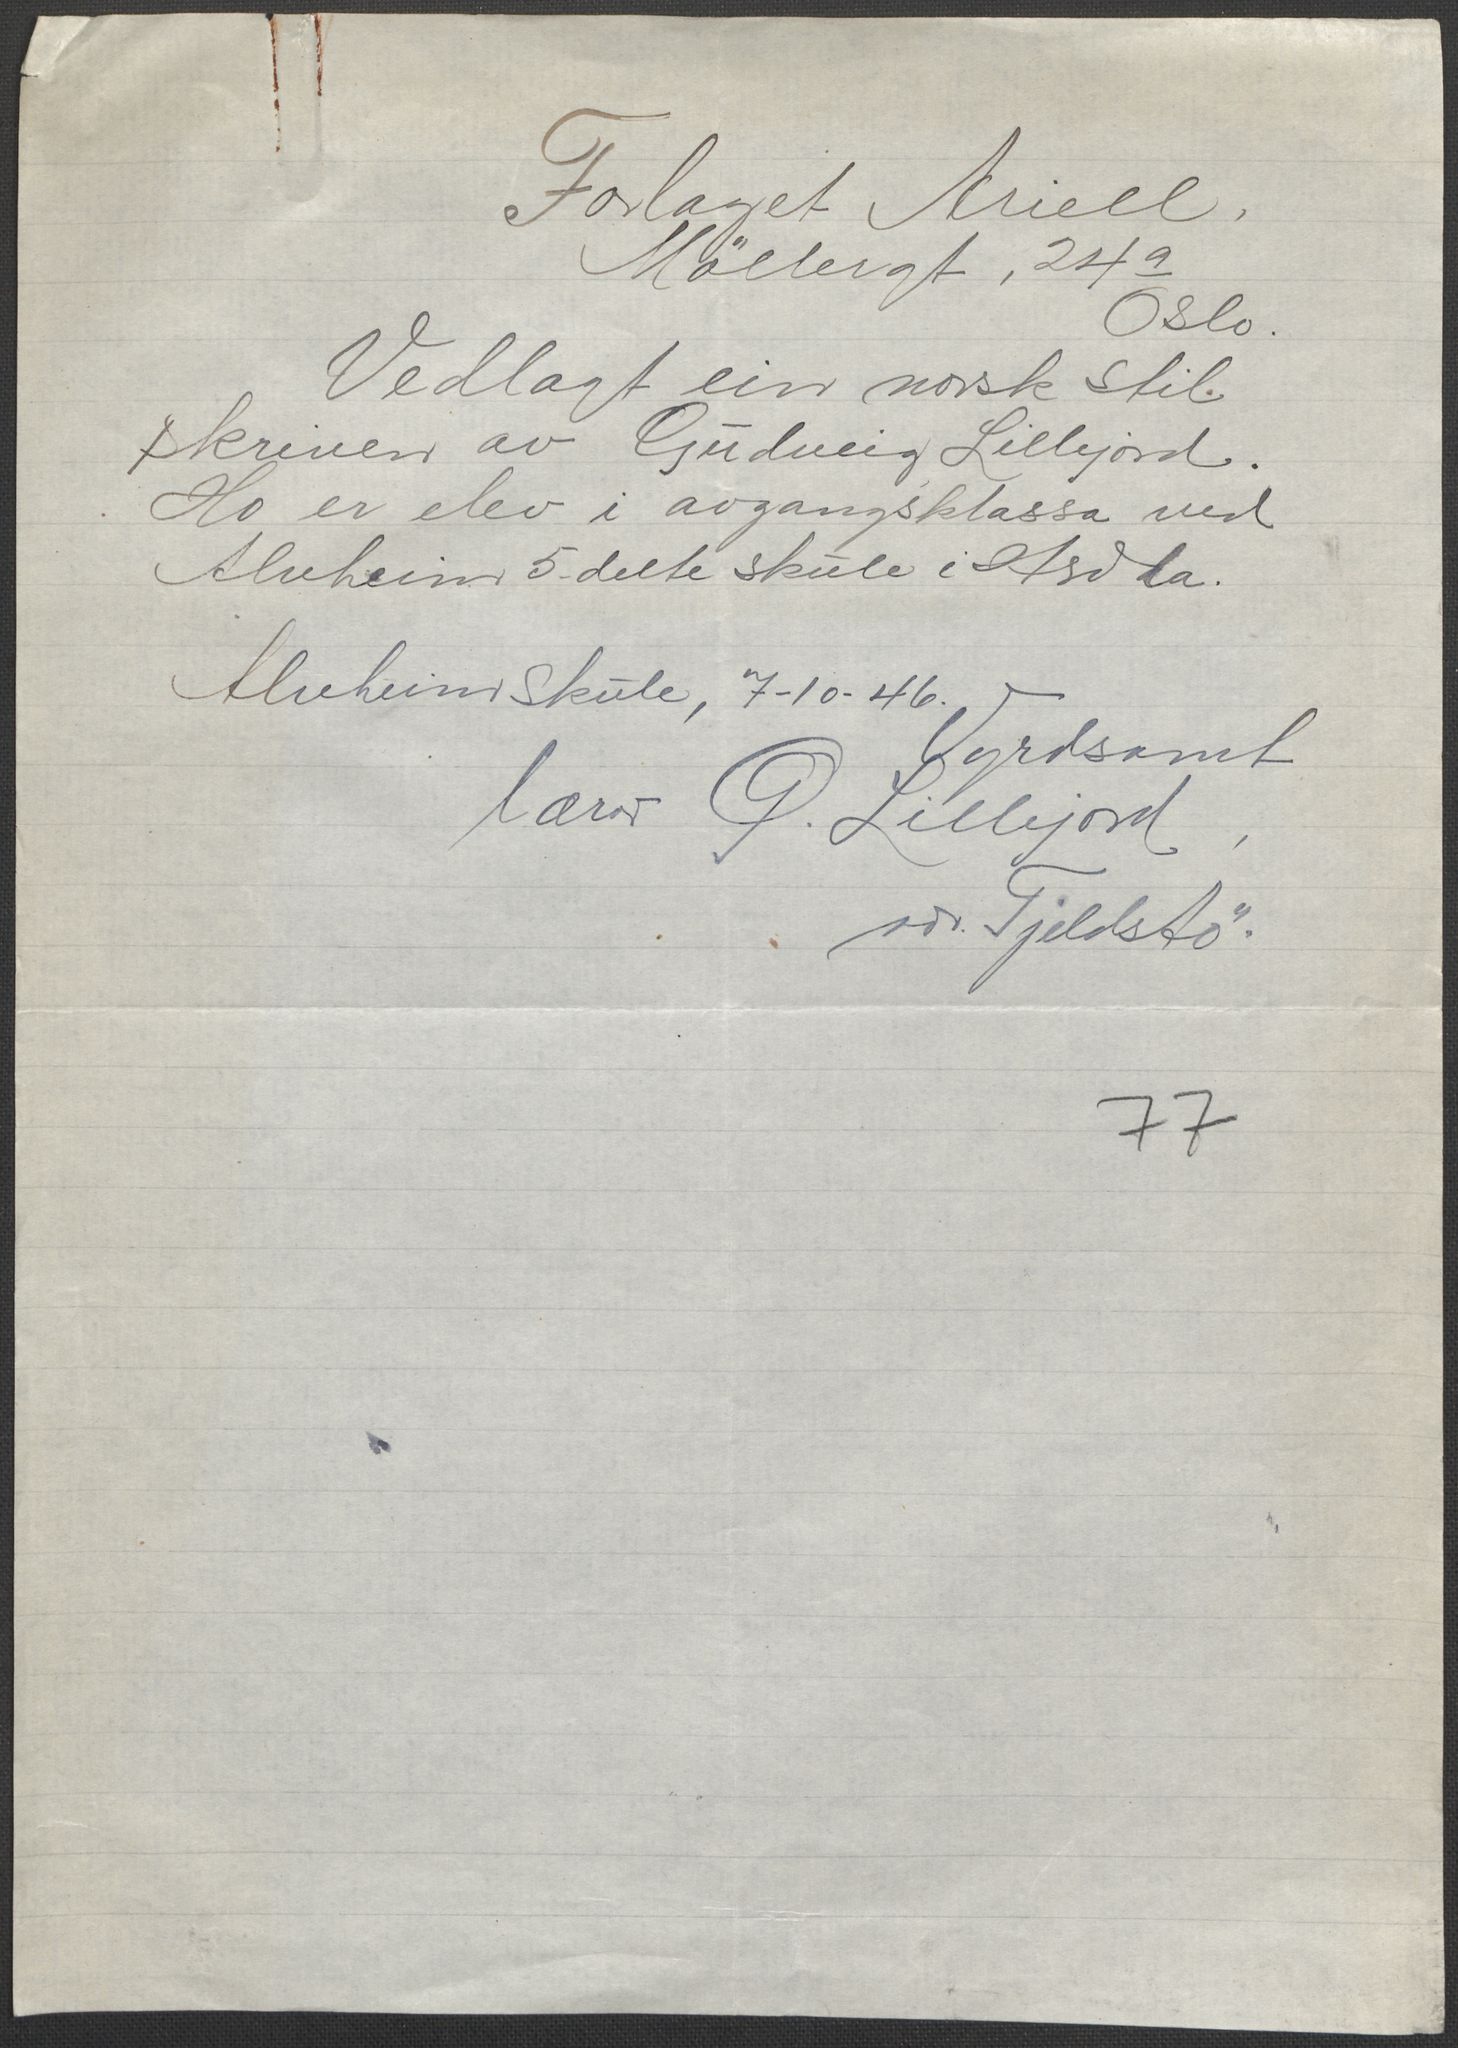 Forlaget Ariell.
Möllergt, 24a
Oslo.
Vedlagt ein norsk stil
skriven av Gudveig Lillejord.
Ho er elev i avgangsklassa ved
Alvheim 5-delte skule i
Alvheim skule, 7-10-46.
Vyrdsamt
lærar O. Lillejord,
adr. Tjeldstö.
77